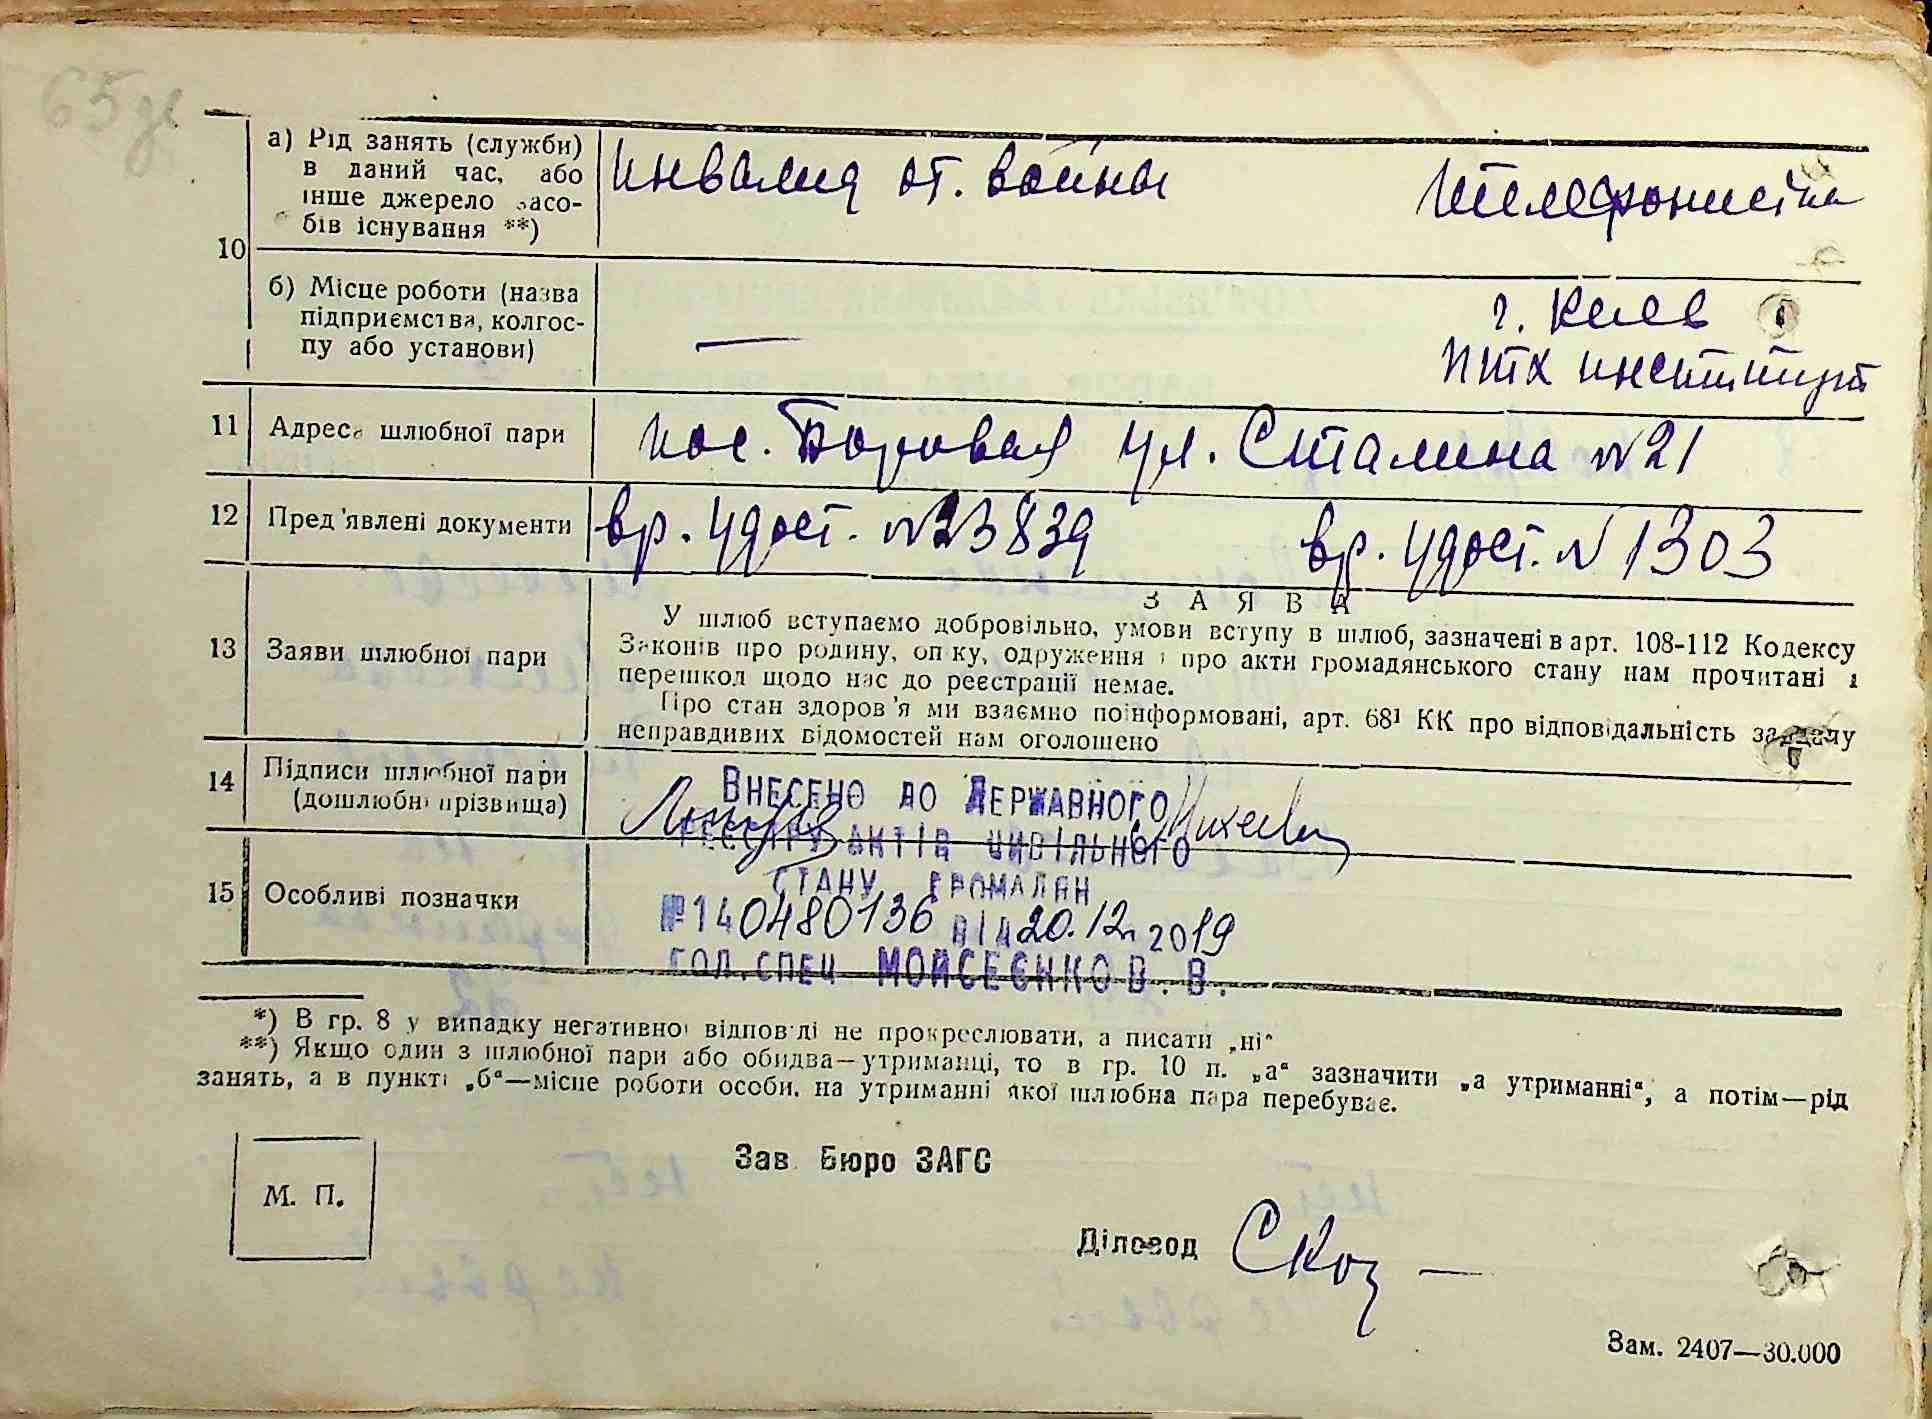 65
10
а) Рід занять (служби)
в даний час, або
інше джерело засо-
бів існування **)
Инвалид от. войны
телефонистка
б) Місце роботи (назва
підприємства, колгос-
пу або установи)
—
г. Киев
институт
11 Адреса шлюбної пари
пос. Боровая ул. Сталина №21
12 Пред'явлені документи
вр. удост. № 33839
вр. удост. № 1303
13 Заяви шлюбної пари
ЗАЯВА
У шлюб вступаємо добровільно, умови вступу в шлюб, зазначені в арт. 108-112 Кодексу
Законів про родину, опіку, одруження і про акти громадянського стану нам прочитані і
перешкод щодо нас до реєстрації немає.
Про стан здоров'я ми взаємно поінформовані, арт. 68¹ КК про відповідальність за дачу
неправдивих відомостей нам оголошено
14 Підписи шлюбної пари
(дошлюбні прізвища)
Внесено до Державного
реєстру актів цивільного
стану громадян
№140480136 від 20.12.2019
гол.спец Мойсеєнко В.В.
15 Особливі позначки
*) В гр. 8 у випадку негативної відповіді не прокреслювати, а писати „ні“
**) Якщо один з шлюбної пари або обидва—утриманці, то в гр. 10 п. „а“ зазначити „а утриманні“, а потім—рід
занять, а в пункті „б“—місце роботи особи, на утриманні якої шлюбна пара перебуває.
М. П.
Зав. Бюро ЗАГС
Діловод
Зам. 2407—30.000